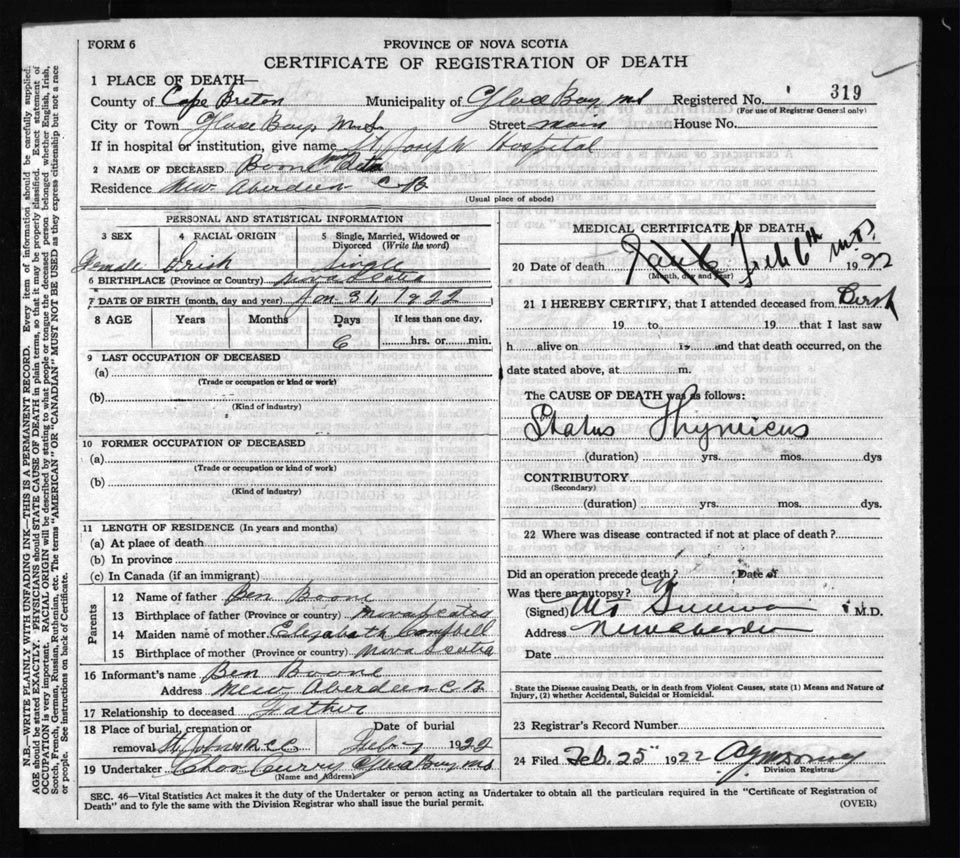 FORM 6
PROVINCE OF NOVA SCOTIA
CERTIFICATE OF REGISTRATION OF DEATH
1 PLACE OF DEATH—
County of Cape Breton Municipality of Glace Bay, Registered No. 319
(For use of Registrar General only)
City or Town Glace Bay Street main House No.
If in hospital or institution, give name St Joseph Hospital
2 NAME OF DECEASED Boone
Residence New Aberdien C-B
(Usual place of abode)
PERSONAL AND STATISTICAL INFORMATION
3 SEX 4 RACIAL ORIGIN 5 Single, Married, Widowed or Divorced (Write the word)
Female Irish Single
6 BIRTHPLACE (Province or Country) Nova Scotia
7 DATE OF BIRTH (month, day and year) Jan 31 1922
8 AGE Years Months Days If less than one day,
6 hrs. or min.
9 LAST OCCUPATION OF DECEASED
(a)
(Trade or occupation or kind or work)
(b)
(Kind of industry)
10 FORMER OCCUPATION OF DECEASED
(a)
(Trade or occupation or kind of work)
(b)
(Kind of industry)
11 LENGTH OF RESIDENCE (In years and months)
(a) At place of death
(b) In province
(c) In Canada (if an immigrant)
Parents
12 Name of father Ben Boone
13 Birthplace of father (Province or country) Nova Scotia
14 Maiden name of mother Elizabath Campbell
15 Birthplace of mother (Province or country) Nova Scotia
16 Informant's name Ben Boone
Address New Aberdeen C B
17 Relationship to deceased Father
18 Place of burial, cremation or Date of burial
removal St Johns Feb 7 1922
19 Undertaker Curry Glace Bay
(Name and Address)
MEDICAL CERTIFICATE OF DEATH
20 Date of death Feb 6th 1922
(Month, day and year)
21 I HEREBY CERTIFY, that I attended deceased from Birth
19 to 19 that I last saw
h alive on 19 and that death occurred, on the
date stated above, at m.
The CAUSE OF DEATH was as follows:
Status Thymicus
(duration) yrs. mos. dys
CONTRIBUTORY
(Secondary)
(duration) yrs. mos. dys.
22 Where was disease contracted if not at place of death?
Did an operation precede death? Date of
Was there an autopsy?
(Signed) M.D.
Address New Aberdeen
Date
State the Disease causing Death, or in death from Violent Causes, state (1) Means and Nature of
Injury, (2) whether Accidental, Suicidal or Homicidal.
23 Registrar's Record Number
24 Filed Feb. 25" 1922
Division Registrar
SEC. 46—Vital Statistics Act makes it the duty of the Undertaker or person acting as Undertaker to obtain all the particulars required in the "Certificate of Registration of
Death" and to fyle the same with the Division Registrar who shall issue the burial permit.
(OVER)
N.B.—WRITE PLAINLY WITH UNFADING INK—THIS IS A PERMANENT RECORD. Every item of information should be carefully supplied.
AGE should be stated EXACTLY. PHYSICIANS should STATE CAUSE OF DEATH in plain terms, so that it may be properly classified. Exact statement of
OCCUPATION is very important. RACIAL ORIGIN will be described by stating to what people or tongue the deceased person belonged whether English, Irish,
Scotch, French, German, Russian, Ruthenian, etc. The terms "AMERICAN" OR "CANADIAN" MUST NOT BE USED as they express citizenship but not a race
or people. See instructions on back of Certificate.